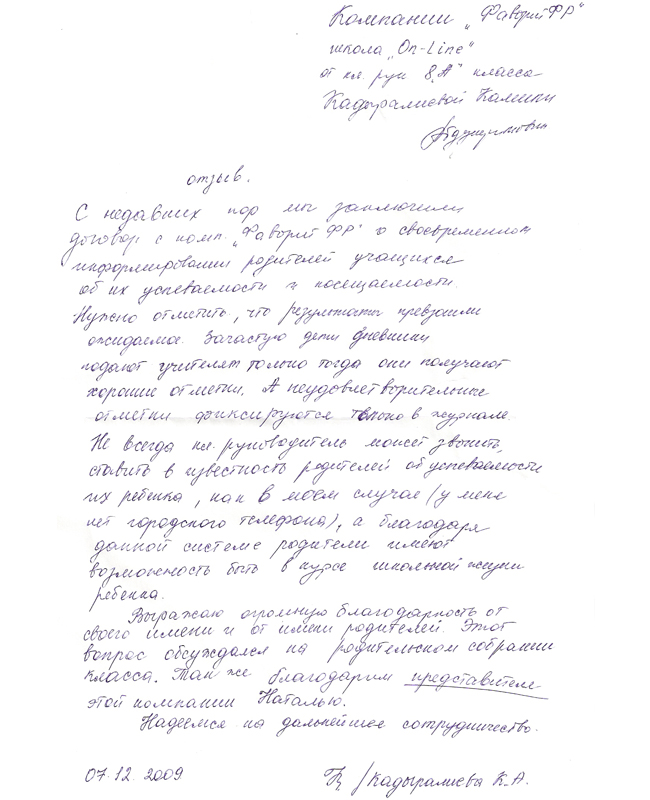 Компании „Фаворит ФР"
школа „On-Line"
от кл. рук 8 „А" класса
Кадыралиевой Калини
отзыв.
С недавних пор мы заключили
договор с комп. „Фаворит ФР" о своевременном
информировании родителей учащихся
об их успеваемости и посещаемости.
Нужно отметить, что результаты превзошли
ожидаемое. Зачастую дети дневники
подают учителям только тогда они получают
хорошие отметки. А неудовлетворительные
отметки фиксируются только в журнале.
Не всегда кл. руководитель может звонить,
ставить в известность родителей об успеваемости
их ребенка, как в моем случае (у меня
нет городского телефона), а благодаря
данной системе родители имеют
возможность быть в курсе школьной жизни
ребенка.
Выражаю огромную благодарность от
своего имени и от имени родителей. Этот
вопрос обсуждался на родительском собрании
класса. Так же благодарим представителя
этой компании Наталью.
Надеемся на дальнейшее сотрудничество.
07.12.2009 /Кадыралиева К.А.